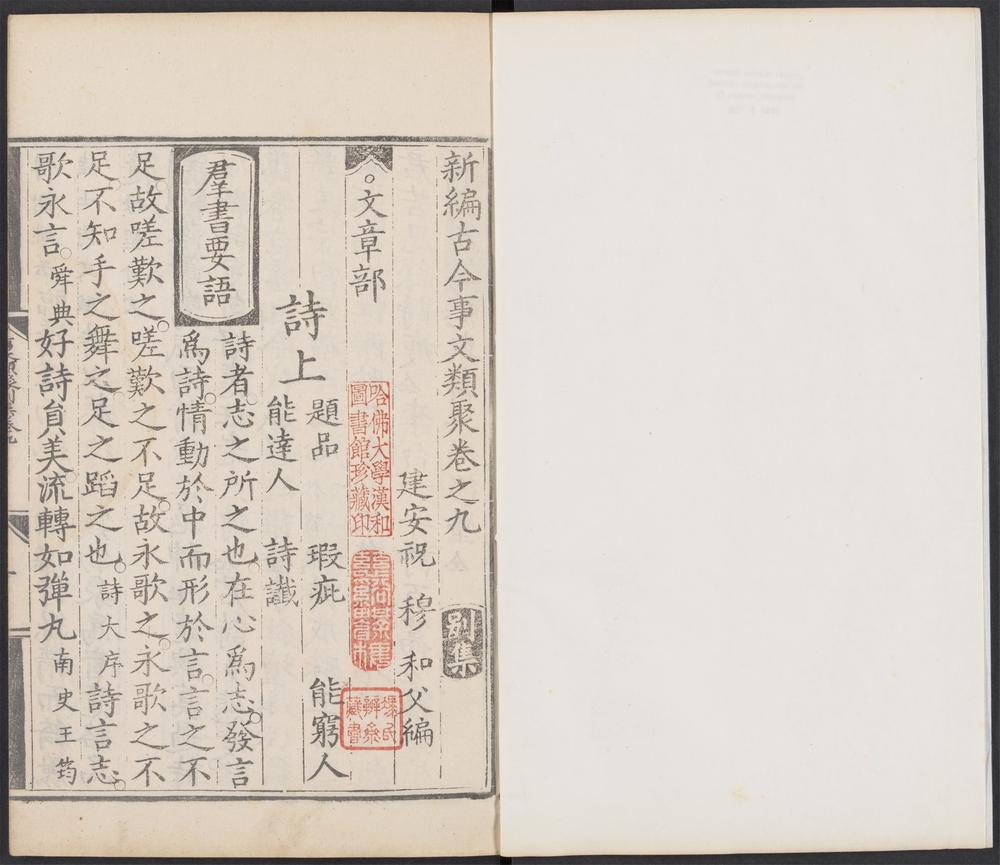 新編古今事文類聚卷之九 別集
建安祝 穆 和父編
。文章部
哈佛大學漢和
圖書館珍藏印
題品 瑕疵 能窮人
詩上
能達人 詩讖
羣書要語
詩者志之所之也在心爲志發言
爲詩情動於中而形於言言之不
足故嗟歎之嗟歎之不足故永歌之永歌之不
足不知手之舞之足之蹈之也詩大序詩言志
歌永言舜典好詩貟美流轉如彈丸南史王筠